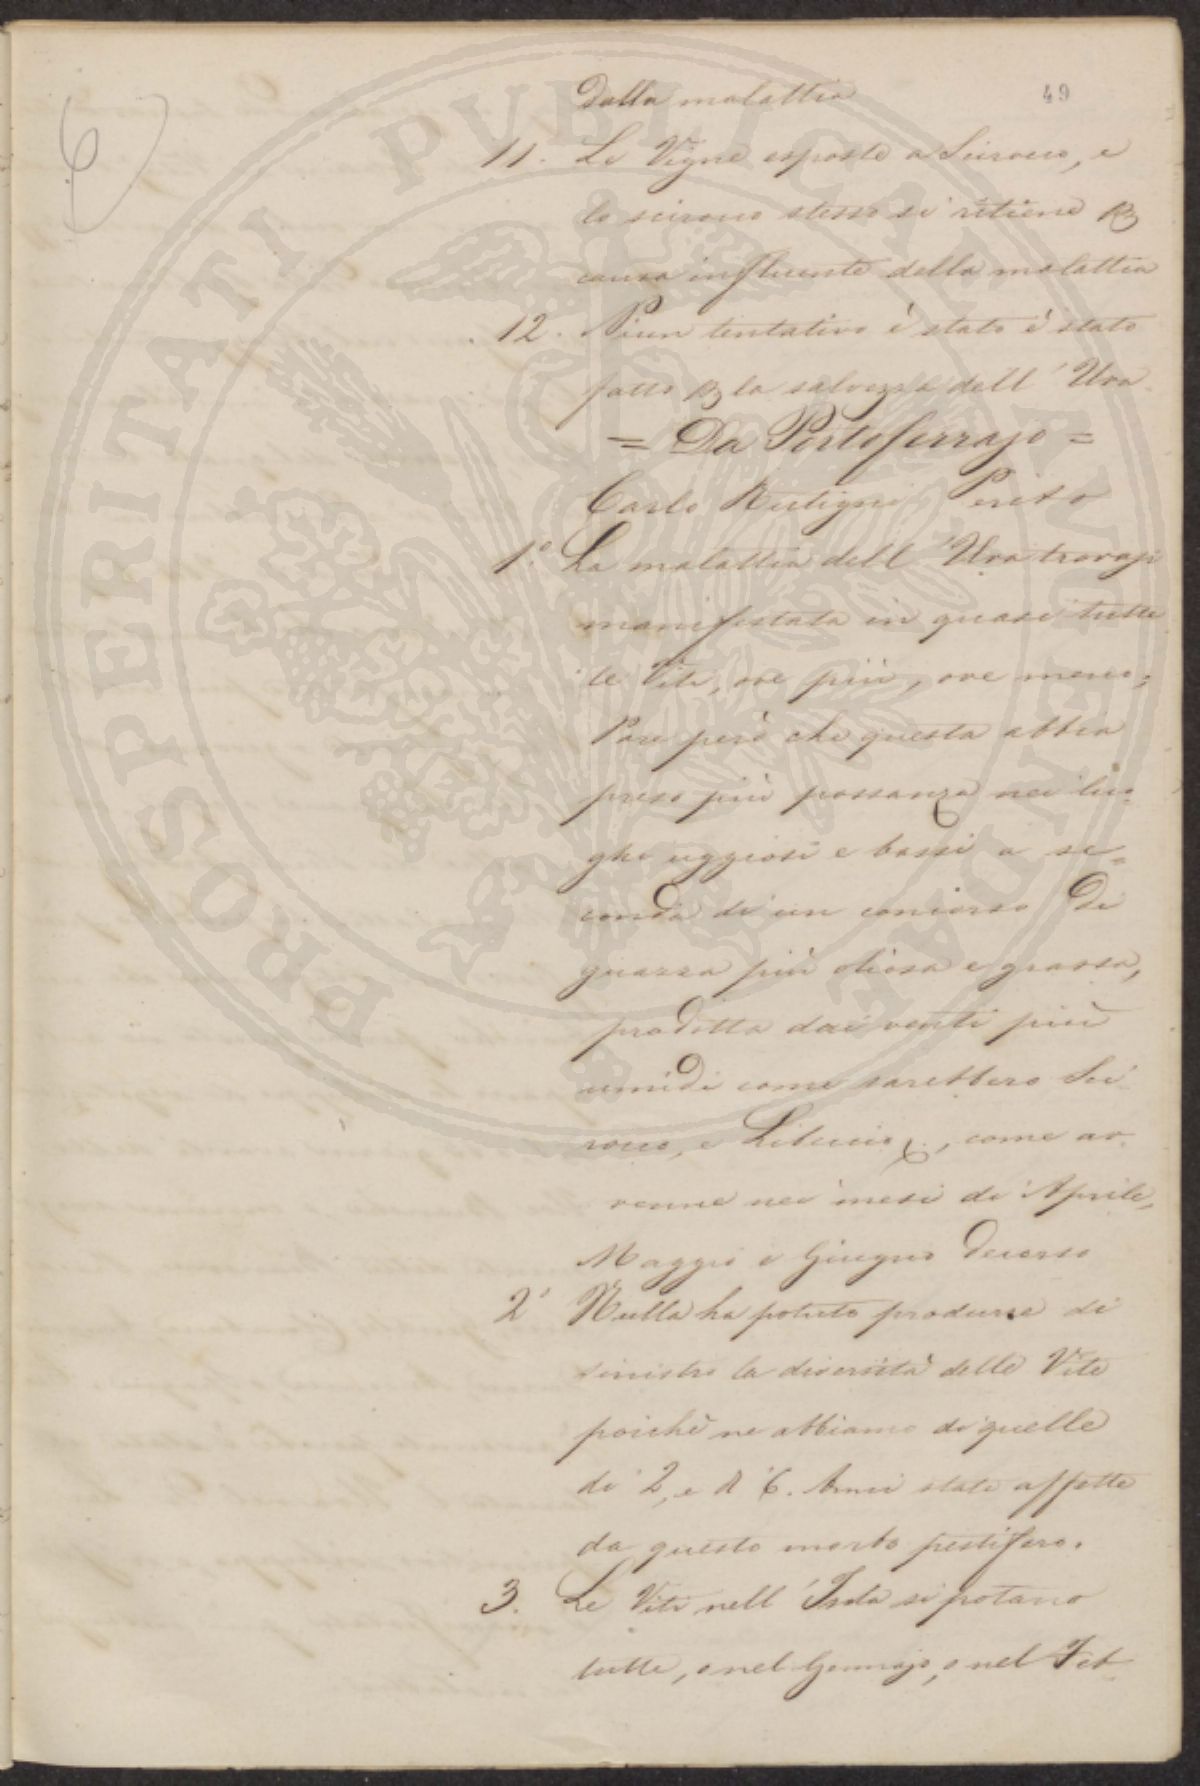 49
6
dalla malattia
11. Le Vigne esposte a Scirocco, e
lo scirocco stesso si ritiene
causa influente della malattia
12. Niun tentativo è stato è stato
fatto la salvezza dell' Uva
= Da Portoferrajo =
Carlo Perito
1.° La malattia dell' Uva trovasi
manifestata in quasi tutte
le Viti, ove più, ove meno;
Pare però che questa abbia
preso più possanza nei luo-
ghi uggiosi e bassi a se=
conda di un concorso di
guazza più oliosa e grassa,
prodotta dai venti più
umidi come sarebbero Sci-
rocco, e Libeccio, come av-
venne nei mesi di Aprile,
Maggio e Giugno decorso
2° Nulla ha potuto produrre di
sinistro la diversità delle Vite
poichè ne abbiamo di quelle
di 2, e di 6. Anni state affette
da questo morbo pestifero.
3. Le Viti nell' Isola si potano
tutte, o nel Gennajo, o nel Feb-
PROSPERITATI PUBLICAE AUGENDAE